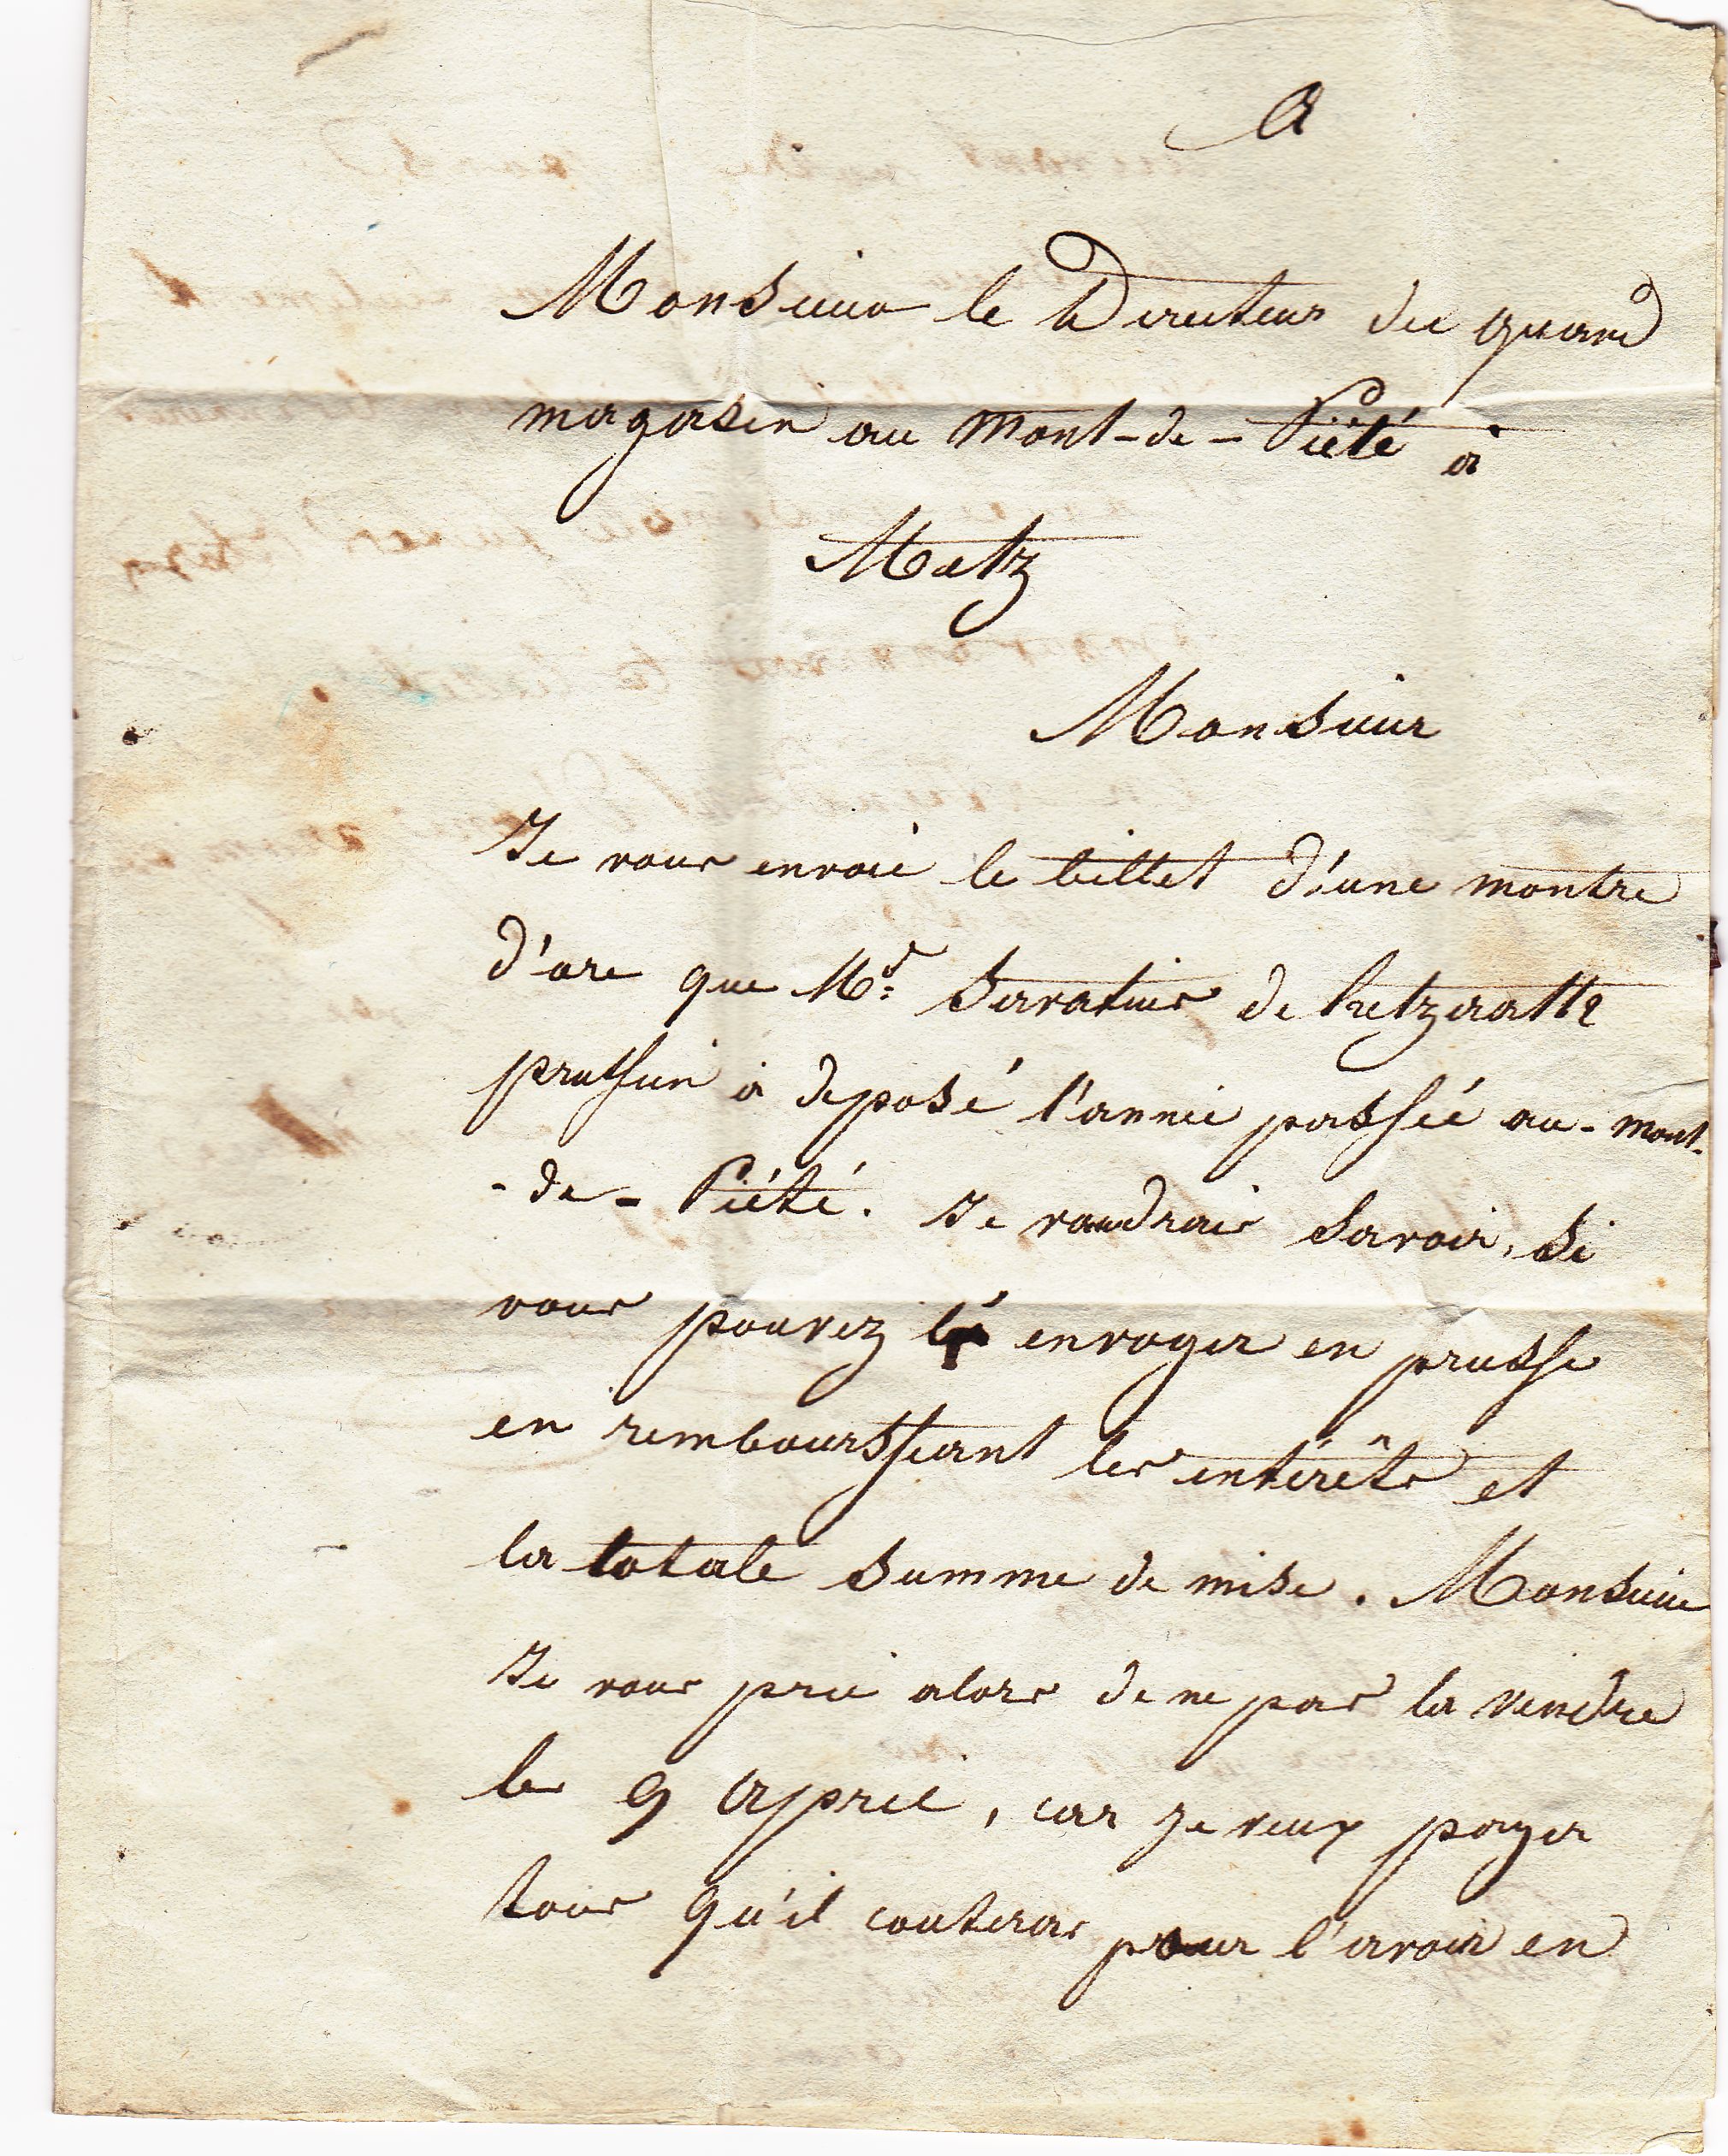 A
Monsieur le Directeur du grand
magasin au Mont-de-Piété à
Metz
Monsieur
Je vous envoié le billet d'une montre
d'ore que Mr: Servatius de Hetzerath
prussien à deposé l'année passée au-mont-
-de-Piété. Je voudrais savoir, si
vous pouvez envoyer en prusse
en rembourssant les intérêts et
la totale summe de mise. Monsieur
Je vous prie alors de ne pas la vendre
le 9 April, car je veux payer
tous qu'il couteras pour l'avoir en